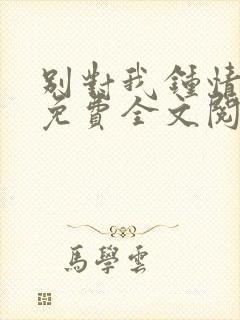 別對我鍾情
免費全文閱
馬學雲